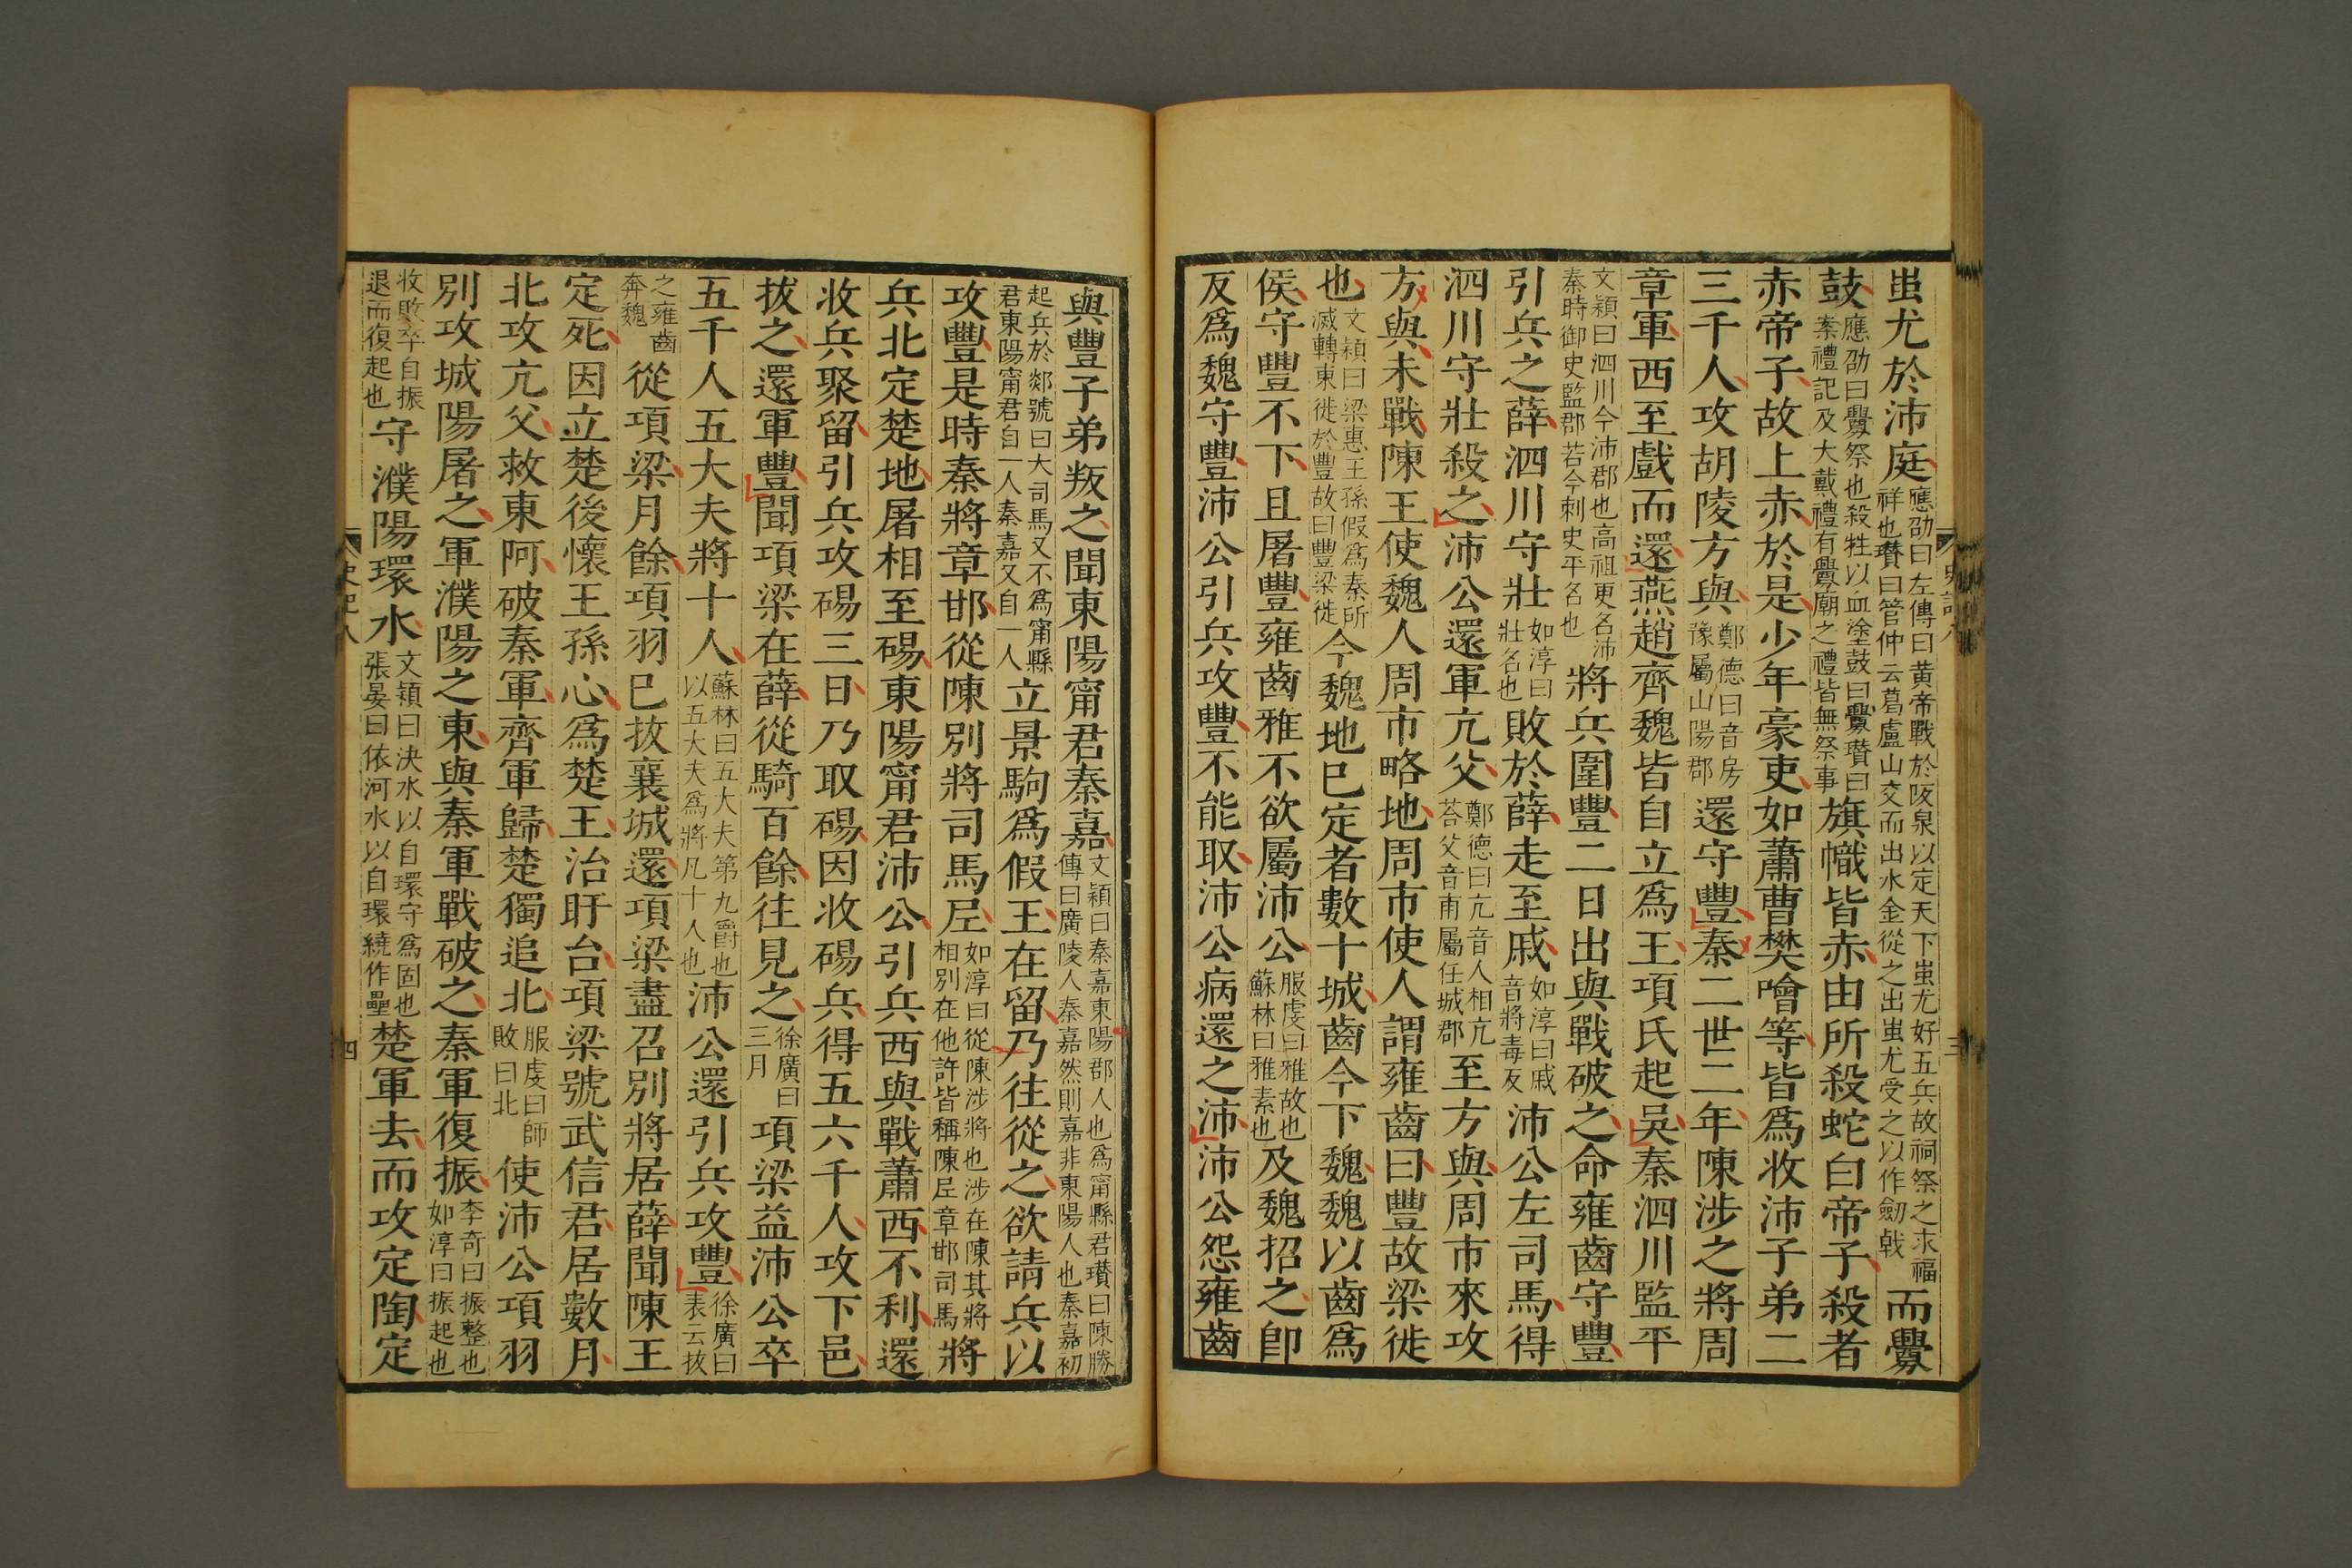 蚩尤於沛庭應劭曰左傳曰黃帝戰於阪泉以定天下蚩尤好五兵故祠祭之求福祥也瓚曰管仲云葛盧山交而出水金從之出蚩尤受之以作劒戟而釁
鼓應劭曰釁祭也殺牲以血塗鼓曰釁瓚曰案禮記及大戴禮有釁廟之禮皆無祭事旗幟皆赤由所殺蛇白帝子殺者
赤帝子故上赤於是少年豪吏如蕭曹樊噲等皆爲收沛子弟二
三千人攻胡陵方與鄭德曰音房豫屬山陽郡還守豐秦二世二年陳涉之將周
章軍西至戲而還燕趙齊魏皆自立爲王項氏起吳秦泗川監平
文穎曰泗川今沛郡也高祖更名沛秦時御史監郡若今刺史平名也將兵圍豐二日出與戰破之命雍齒守豐
引兵之薛泗川守壯如淳曰壯名也敗於薛走至戚如淳曰戚音將毒反沛公左司馬得
泗川守壯殺之沛公還軍亢父鄭德曰亢音人相亢荅父音甫屬任城郡至方與周市來攻
方與未戰陳王使魏人周市略地周市使人謂雍齒曰豐故梁徙
也文穎曰梁惠王孫假爲秦所滅轉東徙於豐故曰豐梁徙今魏地已定者數十城齒今下魏魏以齒爲
侯守豐不下且屠豐雍齒雅不欲屬沛公服虔曰雅故也蘇林曰雅素也及魏招之卽
反爲魏守豐沛公引兵攻豐不能取沛公病還之沛沛公怨雍齒
史記八
三
與豐子弟叛之聞東陽甯君秦嘉文穎曰秦嘉東陽郡人也爲甯縣君瓚曰陳勝傳曰廣陵人秦嘉然則嘉非東陽人也秦嘉初
起兵於郯號曰大司馬又不爲甯縣君東陽甯君自一人秦嘉又自一人立景駒爲假王在留乃往從之欲請兵以
攻豐是時秦將章邯從陳別將司馬𡰥如淳曰從陳涉將也涉在陳其將相別在他許皆稱陳𡰥章邯司馬將
兵北定楚地屠相至碭東陽甯君沛公引兵西與戰蕭西不利還
收兵聚留引兵攻碭三日乃取碭因收碭兵得五六千人攻下邑
拔之還軍豐聞項梁在薛從騎百餘往見之徐廣曰三月項梁益沛公卒
五千人五大夫將十人蘇林曰五大夫第九爵也以五大夫爲將凡十人也沛公還引兵攻豐徐廣曰表云拔
之雍齒奔魏從項梁月餘項羽已拔襄城還項梁盡召別將居薛聞陳王
定死因立楚後懷王孫心爲楚王治盱台項梁號武信君居數月
北攻亢父救東阿破秦軍齊軍歸楚獨追北服虔曰師敗曰北使沛公項羽
別攻城陽屠之軍濮陽之東與秦軍戰破之秦軍復振李奇曰振整也如淳曰振起也
收敗卒自振退而復起也守濮陽環水文穎曰決水以自環守爲固也張晏曰依河水以自環繞作壘楚軍去而攻定陶定
史記八
四